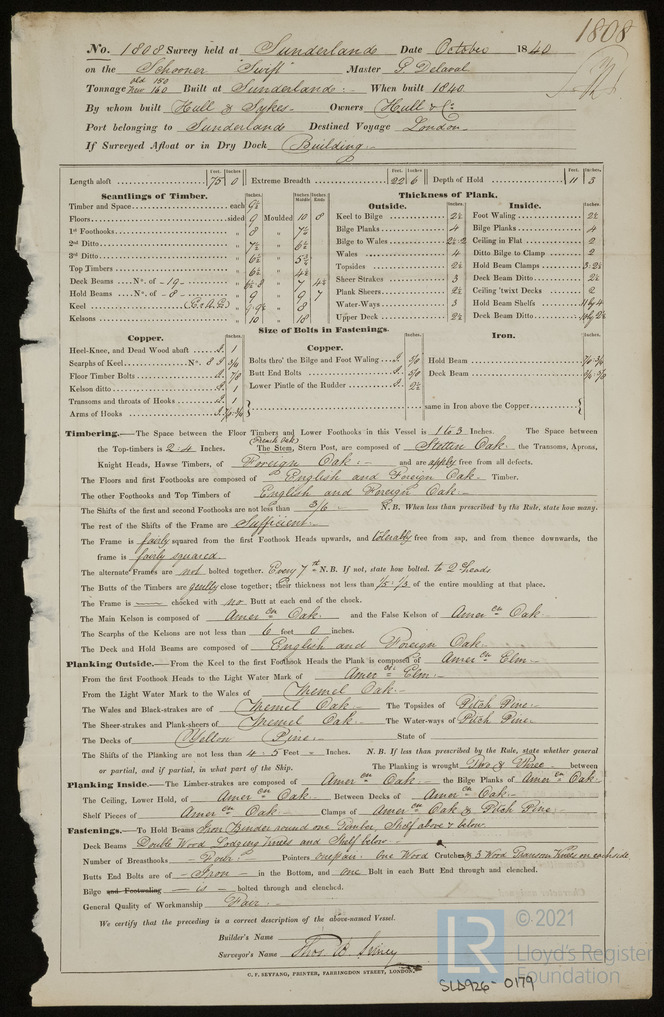 1808
No. 1808 Survey held at Sunderland Date October 1840
on the Schooner "Swift" Master G. Delaval
Tonnage old 150 New 160 Built at Sunderland When built 1840
By whom built Hull & Sykes Owners Hull & Co
Port belonging to Sunderland Destined Voyage London
If Surveyed Afloat or in Dry Dock Building
Feet. Inches. Feet. Inches Feet. Inches.
Length aloft 75 0 Extreme Breadth 22 6 Depth of Hold 11 3
Scantlings of Timber. Thickness of Plank.
Outside. Inside.
Timber and Space each
Floors sided 9 Moulded 10 8
1st Foothooks 8 7½
2nd Ditto 7½ 6½
3rd Ditto 6½
Top Timbers 6½
Deck Beams No. of 19
Hold Beams No. of 8 9 9 7
Keel 8
Kelsons 10
Keel to Bilge 2½
Bilge Planks 4
Bilge to Wales
Wales 4
Topsides 2½
Sheer Strakes 3
Plank Sheers 2½
Water-Ways 3
Upper Deck 2½
Foot Waling 2½
Bilge Planks 4
Ceiling in Flat 2
Ditto Bilge to Clamp 2
Hold Beam Clamps
Deck Beam Ditto 2½
Ceiling 'twixt Decks 2
Hold Beam Shelfs 11 by 4
Deck Beam Ditto
Size of Bolts in Fastenings.
Copper.
Heel-Knee, and Dead Wood abaft 1
Scarphs of Keel No. 8
Floor Timber Bolts 7/8
Kelson ditto 1
Transoms and throats of Hooks 1
Arms of Hooks
Copper.
Bolts thro' the Bilge and Foot Waling
Butt End Bolts
Lower Pintle of the Rudder 2½
Iron.
Hold Beam
Deck Beam
same in Iron above the Copper
Timbering.—The Space between the Floor Timbers and Lower Foothooks in this Vessel is 1 to 3 Inches. The Space between
the Top-timbers is 2 : 4 Inches. (French Oak) The Stem, Stern Post, are composed of Stettin Oak the Transoms, Aprons,
Knight Heads, Hawse Timbers, of Foreign Oak and are free from all defects.
The Floors and first Foothooks are composed of English and Foreign Oak Timber.
The other Foothooks and Top Timbers of English and Foreign Oak
The Shifts of the first and second Foothooks are not less than 3/6 N.B. When less than prescribed by the Rule, state how many.
The rest of the Shifts of the Frame are Sufficient
The Frame is fairly squared from the first Foothook Heads upwards, and tolerably free from sap, and from thence downwards, the
frame is fairly squared
The alternate Frames are not bolted together. Every 7th N.B. If not, state how bolted. to 2 Heads
The Butts of the Timbers are close together; their thickness not less than 1/5 : 1/3 of the entire moulding at that place.
The Frame is chocked with no Butt at each end of the chock.
The Main Kelson is composed of Amern Oak and the False Kelson of Amern Oak
The Scarphs of the Kelsons are not less than 6 feet 0 inches.
The Deck and Hold Beams are composed of English and Foreign Oak
Planking Outside.—From the Keel to the first Foothook Heads the Plank is composed of Amern Elm
From the first Foothook Heads to the Light Water Mark of Amern Elm
From the Light Water Mark to the Wales of Memel Oak
The Wales and Black-strakes are of Memel Oak The Topsides of Pitch Pine
The Sheer-strakes and Plank-sheers of Memel Oak The Water-ways of Pitch Pine
The Decks of Yellow Pine State of
The Shifts of the Planking are not less than 4 : 5 Feet Inches. N.B. If less than prescribed by the Rule, state whether general
or partial, and if partial, in what part of the Ship. The Planking is wrought Two & Three between
Planking Inside.—The Limber-strakes are composed of Amern Oak the Bilge Planks of Amern Oak
The Ceiling, Lower Hold, of Amern Oak Between Decks of Amern Oak
Shelf Pieces of Amern Oak Clamps of Amern Oak & Pitch Pine
Fastenings.—To Hold Beams Iron Binder round one Timber, Shelf above & below
Deck Beams Double Wood Lodging Knees and Shelf below
Number of Breasthooks Four Pointers one pair: one Wood Crutches & 3 Wood Transom Knees on each side
Butts End Bolts are of Iron in the Bottom, and one Bolt in each Butt End through and clenched.
Bilge and Footwaling is bolted through and clenched.
General Quality of Workmanship Fair
We certify that the preceding is a correct description of the above-named Vessel.
Builder's Name
Surveyor's Name Thos. B. Simey
C. F. SEYFANG, PRINTER, FARRINGDON STREET, LONDON.
SLD926-0179
LR
© 2021
Lloyd's Register
Foundation